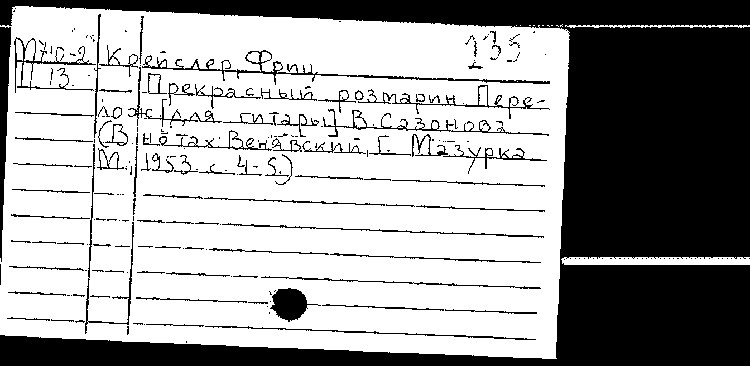 135
М710-2 Крейслер, Фриц
П 13. Прекрасный розмарин. Пере-
лож [для гитары] В. Сазонова
(В нотах: Венявский, Г. Мазурка
М., 1953. с. 4-5.)